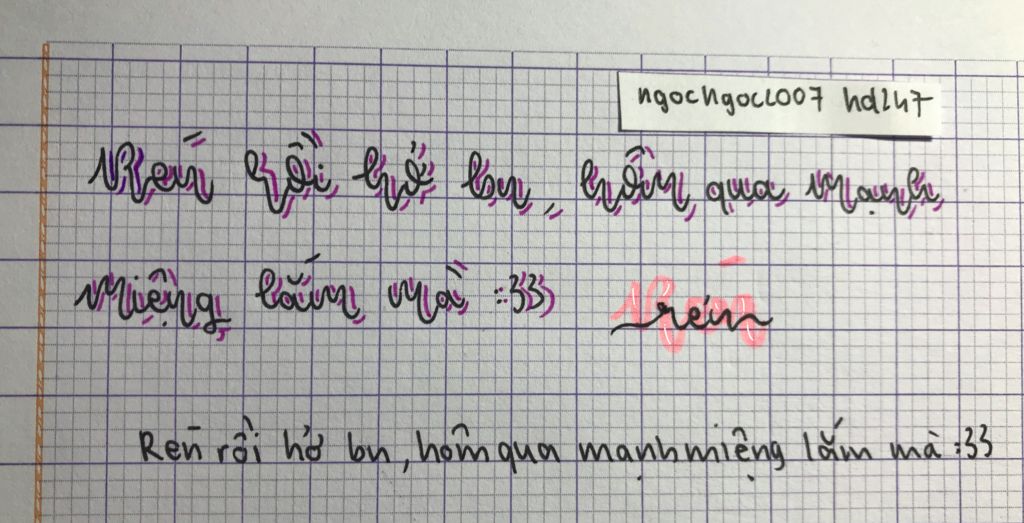 ngocngocc007 hdl47
Ren̄ rồi hở bn, hôm qua mạnh
miệng lắm mà :333
rén
Ren̄ rồi hở bn, hôm qua mạnh miệng lắm mà :33